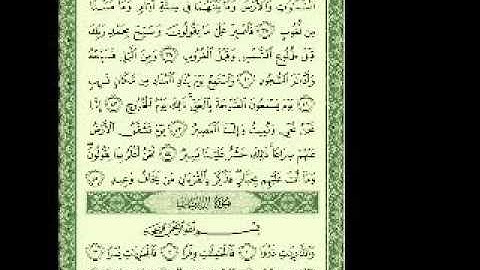 ٱلسَّمَٰوَٰتِ وَٱلْأَرْضَ وَمَا بَيْنَهُمَا فِى سِتَّةِ أَيَّامٍ وَمَا مَسَّنَا
مِن لُّغُوبٍ ٣٨ فَٱصْبِرْ عَلَىٰ مَا يَقُولُونَ وَسَبِّحْ بِحَمْدِ رَبِّكَ
قَبْلَ طُلُوعِ ٱلشَّمْسِ وَقَبْلَ ٱلْغُرُوبِ ٣٩ وَمِنَ ٱلَّيْلِ فَسَبِّحْهُ
وَأَدْبَٰرَ ٱلسُّجُودِ ٤٠ وَٱسْتَمِعْ يَوْمَ يُنَادِ ٱلْمُنَادِ مِن مَّكَانٍ قَرِيبٍ
٤١ يَوْمَ يَسْمَعُونَ ٱلصَّيْحَةَ بِٱلْحَقِّ ذَٰلِكَ يَوْمُ ٱلْخُرُوجِ ٤٢ إِنَّا
نَحْنُ نُحْىِۦ وَنُمِيتُ وَإِلَيْنَا ٱلْمَصِيرُ ٤٣ يَوْمَ تَشَقَّقُ ٱلْأَرْضُ
عَنْهُمْ سِرَاعًا ذَٰلِكَ حَشْرٌ عَلَيْنَا يَسِيرٌ ٤٤ نَّحْنُ أَعْلَمُ بِمَا يَقُولُونَ
وَمَآ أَنتَ عَلَيْهِم بِجَبَّارٍ فَذَكِّرْ بِٱلْقُرْءَانِ مَن يَخَافُ وَعِيدِ ٤٥
سُورَةُ الذَّارِيَاتِ
بِسْمِ ٱللَّهِ ٱلرَّحْمَٰنِ ٱلرَّحِيمِ
وَٱلذَّٰرِيَٰتِ ذَرْوًا ١ فَٱلْحَٰمِلَٰتِ وِقْرًا ٢ فَٱلْجَٰرِيَٰتِ يُسْرًا ٣